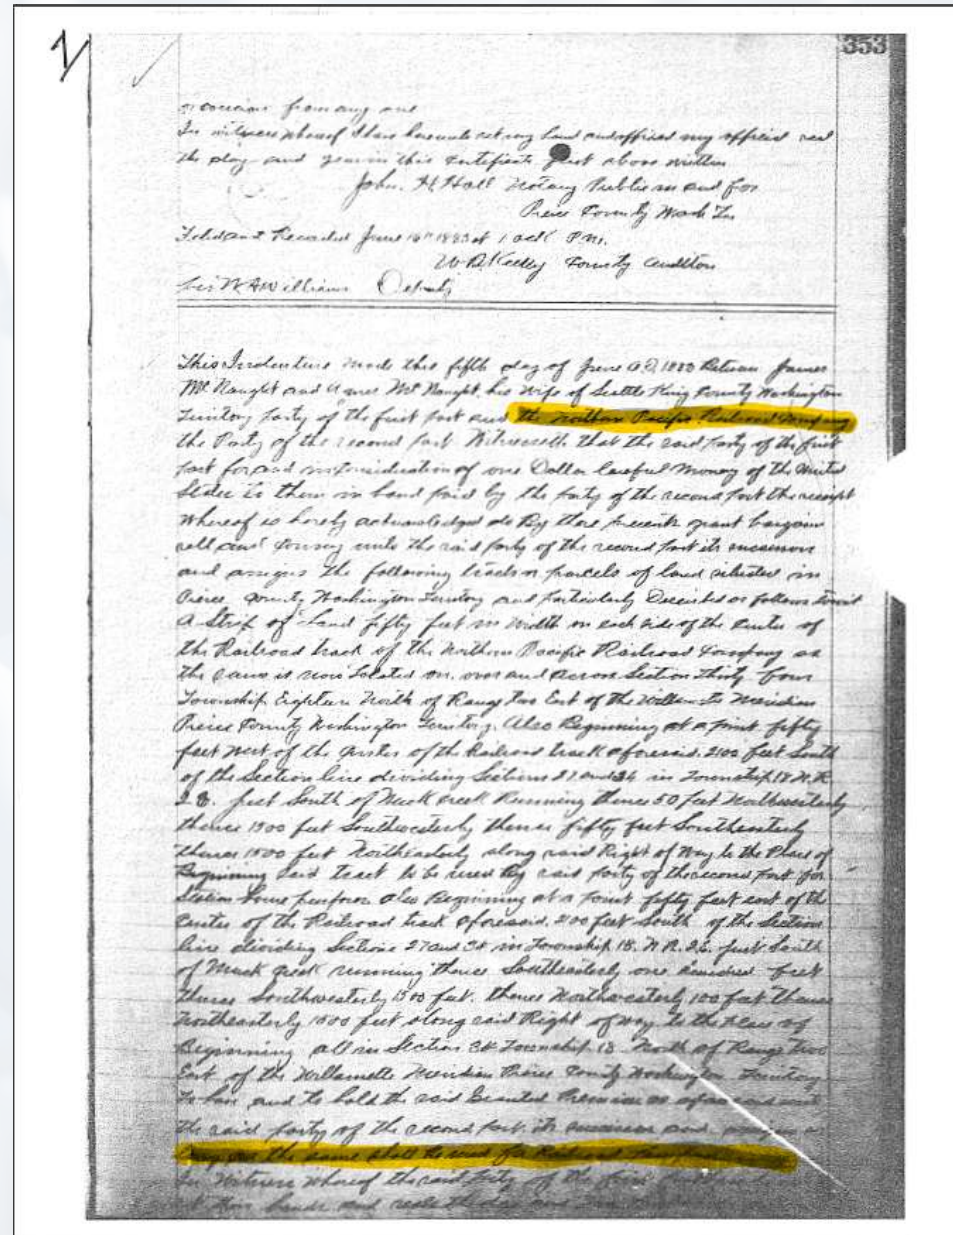 353
or coercion from any one
In witness whereof I have hereunto set my hand and affixed my official seal
the day and year in this certificate first above written
John. H. Hall Notary Public in and for
Pierce County Wash Ty
Filed and Recorded June 16th 1883 at 1 ocl'k P.M.
W. B. Kelley County Auditor
per W H Williams Deputy
This Indenture made this fifth day of June A.D. 1883 Between James
McNaught and Agnes McNaught his wife of Seattle King County Washington
Territory party of the first part and the Northern Pacific Railroad Company
the Party of the second part Witnesseth that the said party of the first
part for and in consideration of one Dollar Lawful Money of the United
States to them in hand paid by the party of the second part the receipt
whereof is hereby acknowledged do By these presents grant bargain
sell and convey unto the said party of the second part its successors
and assigns the following tracts or parcels of land situated in
Pierce County Washington Territory and particularly Described as follows towit
A Strip of Land fifty feet in width on each side of the center of
the Railroad track of the Northern Pacific Railroad Company as
the same is now Located on, over and across Section Thirty four
Township Eighteen North of Range two East of the Willamette Meridian
Pierce County Washington Territory. Also Beginning at a point fifty
feet West of the center of the Railroad track aforesaid. 2100 feet South
of the Section line dividing Sections 27 and 34 in Township 18 N. R.
2 E. feet South of Muck creek Running thence 50 feet Northwesterly
thence 1500 feet Southwesterly thence fifty feet Southeasterly
thence 1500 feet Northeasterly along said Right of Way to the Place of
Beginning Said tract to be used by said party of the second part for
Station House purposes also Beginning at a point fifty feet east of the
center of the Railroad track aforesaid. 200 feet South of the Section
line dividing Sections 27 and 34 in Township 18. N R. 2 E. just South
of Muck Creek running thence Southeasterly one hundred feet
thence Southwesterly 1500 feet. thence Northwesterly 100 feet thence
Northeasterly 1500 feet along said Right of Way to the place of
Beginning all in Section 34 Township 18 North of Range two
East of the Willamette Meridian Pierce County Washington Territory
To have and to hold the said Granted Premises as aforesaid unto
the said party of the second part its successors and assigns
the same shall be used for Railroad
In Witness whereof the said party of the first
set their hands and seals the day and